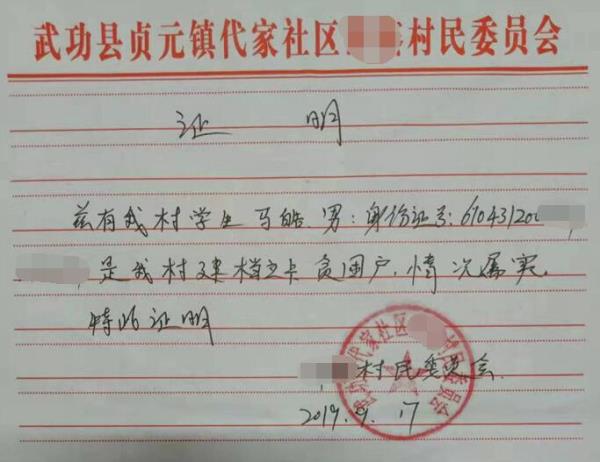 武功县贞元镇代家社区 村民委员会
证 明
兹有我村学生马皓 男：身份证号：61043120
是我村建档立卡贫困户，情况属实。
特此证明
村民委员会
2019.9.17
武功 代家社区 村民委员会